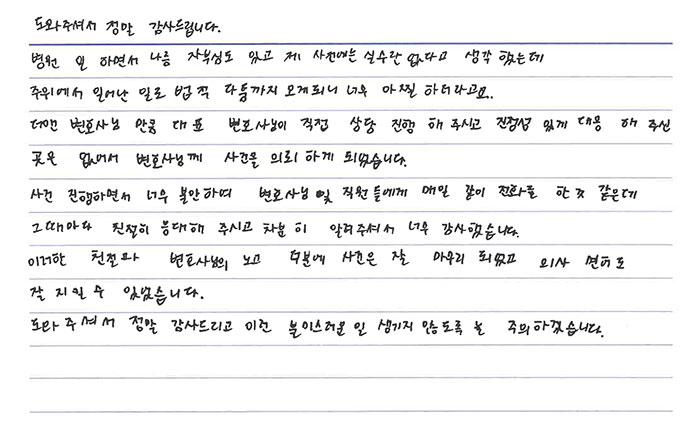 도와주셔서 정말 감사드립니다.
병원 일 하면서 나름 자부심도 있고 제 사전에는 실수란 없다고 생각 했는데
주위에서 일어난 일로 법적 다툼까지 오게되니 너무 아찔 하더라고요.
더앤 변호사님 만큼 대표 변호사님이 직접 상담 진행 해 주시고 진정성 있게 대응 해 주신
곳은 없어서 변호사님께 사건을 의뢰 하게 되었습니다.
사건 진행하면서 너무 불안하여 변호사님 및 직원들에게 매일 같이 전화를 한 것 같은데
그때마다 친절히 응대해 주시고 차분히 알려주셔서 너무 감사했습니다.
이러한 친절과 변호사님의 노고 덕분에 사건은 잘 마무리 되었고 의사 면허도
잘 지킬 수 있었습니다.
도와주셔서 정말 감사드리고 이런 불미스러운 일 생기지 않도록 늘 주의하겠습니다.